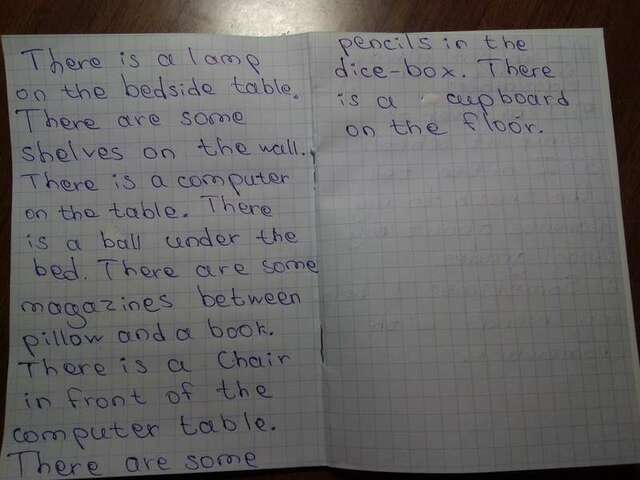 There is a lamp
on the bedside table.
There are some
shelves on the wall.
There is a computer
on the table. There
is a ball under the
bed. There are some
magazines between
pillow and a book.
There is a Chair
in front of the
computer table.
There are some
pencils in the
dice-box. There
is a cupboard
on the floor.